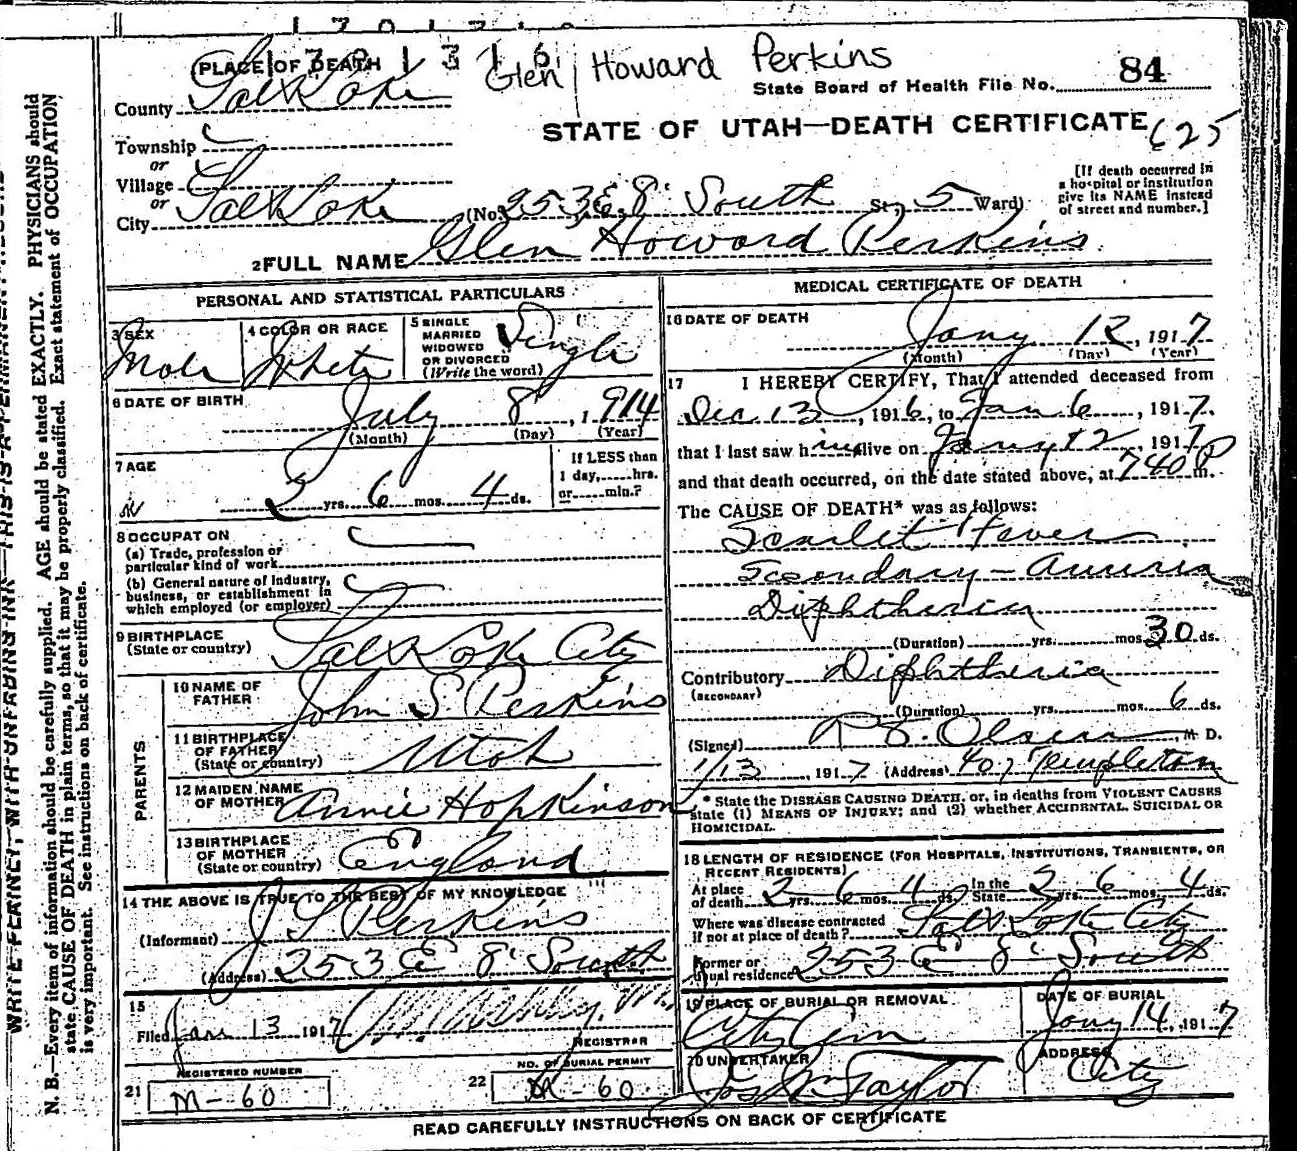 1701316
Glen Howard Perkins
PLACE OF DEATH
State Board of Health File No. 84
County Salt Lake
STATE OF UTAH—DEATH CERTIFICATE
625
Township
or
Village
or
City Salt Lake (No. 253 E. 8' South St; 5 Ward)
[If death occurred in
a hospital or institution
give its NAME instead
of street and number.]
2 FULL NAME Glen Howard Perkins
PERSONAL AND STATISTICAL PARTICULARS
3 SEX
Male
4 COLOR OR RACE
White
5 SINGLE
MARRIED
WIDOWED
OR DIVORCED
(Write the word)
Single
6 DATE OF BIRTH
July 8, 1914
(Month) (Day) (Year)
7 AGE
2 yrs. 6 mos. 4 ds.
If LESS than
1 day,......hrs.
or......min.?
8 OCCUPATION
(a) Trade, profession or
particular kind of work
(b) General nature of industry,
business, or establishment in
which employed (or employer)
9 BIRTHPLACE
(State or country) Salt Lake City
PARENTS
10 NAME OF
FATHER John S. Perkins
11 BIRTHPLACE
OF FATHER
(State or country) Utah
12 MAIDEN NAME
OF MOTHER Annie Hopkinson
13 BIRTHPLACE
OF MOTHER
(State or country) England
14 THE ABOVE IS TRUE TO THE BEST OF MY KNOWLEDGE
(Informant) J S Perkins
(Address) 253 E 8' South
15
Filed Jan 13 1917
REGISTRAR
REGISTERED NUMBER
21 M-60
NO. OF BURIAL PERMIT
22 M-60
MEDICAL CERTIFICATE OF DEATH
16 DATE OF DEATH
Jany 12, 1917
(Month) (Day) (Year)
17 I HEREBY CERTIFY, That I attended deceased from
Dec 13, 1916, to Jan 6, 1917.
that I last saw him alive on Jany 12, 1917
and that death occurred, on the date stated above, at 740 P m.
The CAUSE OF DEATH* was as follows:
Scarlet Fever
Secondary-
Diphtheria
(Duration) yrs. mos. 30 ds.
Contributory Diphtheria
(SECONDARY)
(Duration) yrs. mos. 6 ds.
(Signed) Olsen, M. D.
1/13, 1917 (Address) 407 Templeton
* State the DISEASE CAUSING DEATH, or, in deaths from VIOLENT CAUSES
state (1) MEANS OF INJURY; and (2) whether ACCIDENTAL, SUICIDAL OR
HOMICIDAL.
18 LENGTH OF RESIDENCE (FOR HOSPITALS, INSTITUTIONS, TRANSIENTS, OR
RECENT RESIDENTS)
At place
of death 2 yrs. 6 mos. 4 ds. In the
State 2 yrs. 6 mos. 4 ds.
Where was disease contracted
if not at place of death? Salt Lake City
Former or
usual residence 253 E 8' South
19 PLACE OF BURIAL OR REMOVAL
City Cem
DATE OF BURIAL
Jany 14, 1917
20 UNDERTAKER
Jos Wm Taylor
ADDRESS
City
READ CAREFULLY INSTRUCTIONS ON BACK OF CERTIFICATE
WRITE PLAINLY, WITH UNFADING INK—THIS IS A PERMANENT RECORD
N. B.—Every item of information should be carefully supplied. AGE should be stated EXACTLY. PHYSICIANS should
state CAUSE OF DEATH in plain terms, so that it may be properly classified. Exact statement of OCCUPATION
is very important. See instructions on back of certificate.